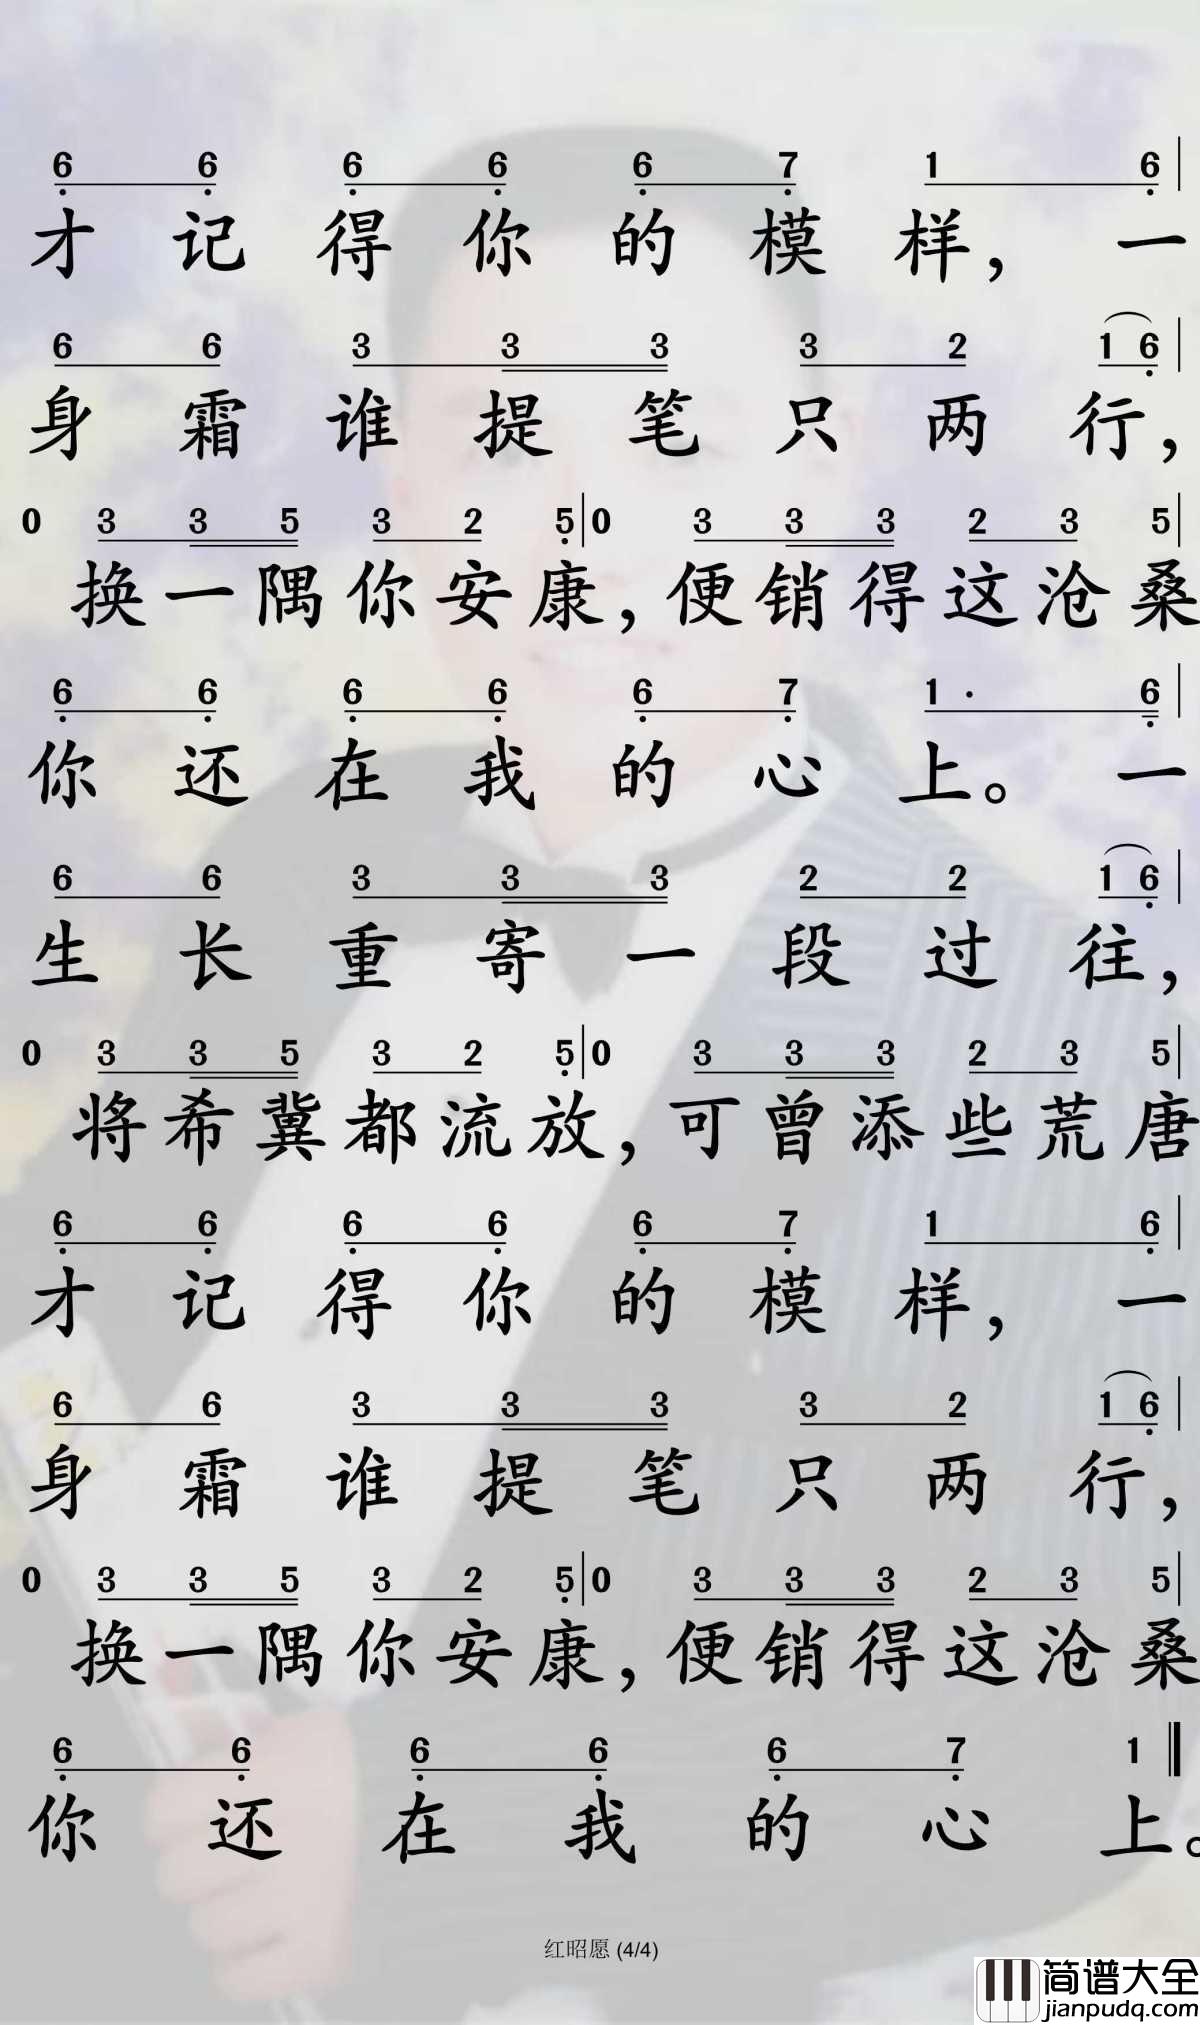 6 6 6 6 6 7 1 6
才记得你的模样，一
6 6 3 3 3 3 2 1 6
身霜谁提笔只两行，
0 3 3 5 3 2 5 0 3 3 3 2 3 5
换一隅你安康，便销得这沧桑
6 6 6 6 6 7 1 · 6
你还在我的心上。一
6 6 3 3 3 2 2 1 6
生长重寄一段过往，
0 3 3 5 3 2 5 0 3 3 3 2 3 5
将希冀都流放，可曾添些荒唐
6 6 6 6 6 7 1 6
才记得你的模样，一
6 6 3 3 3 3 2 1 6
身霜谁提笔只两行，
0 3 3 5 3 2 5 0 3 3 3 2 3 5
换一隅你安康，便销得这沧桑
6 6 6 6 6 7 1
你还在我的心上。
红昭愿 (4/4)
简谱大全
jianpudq.com